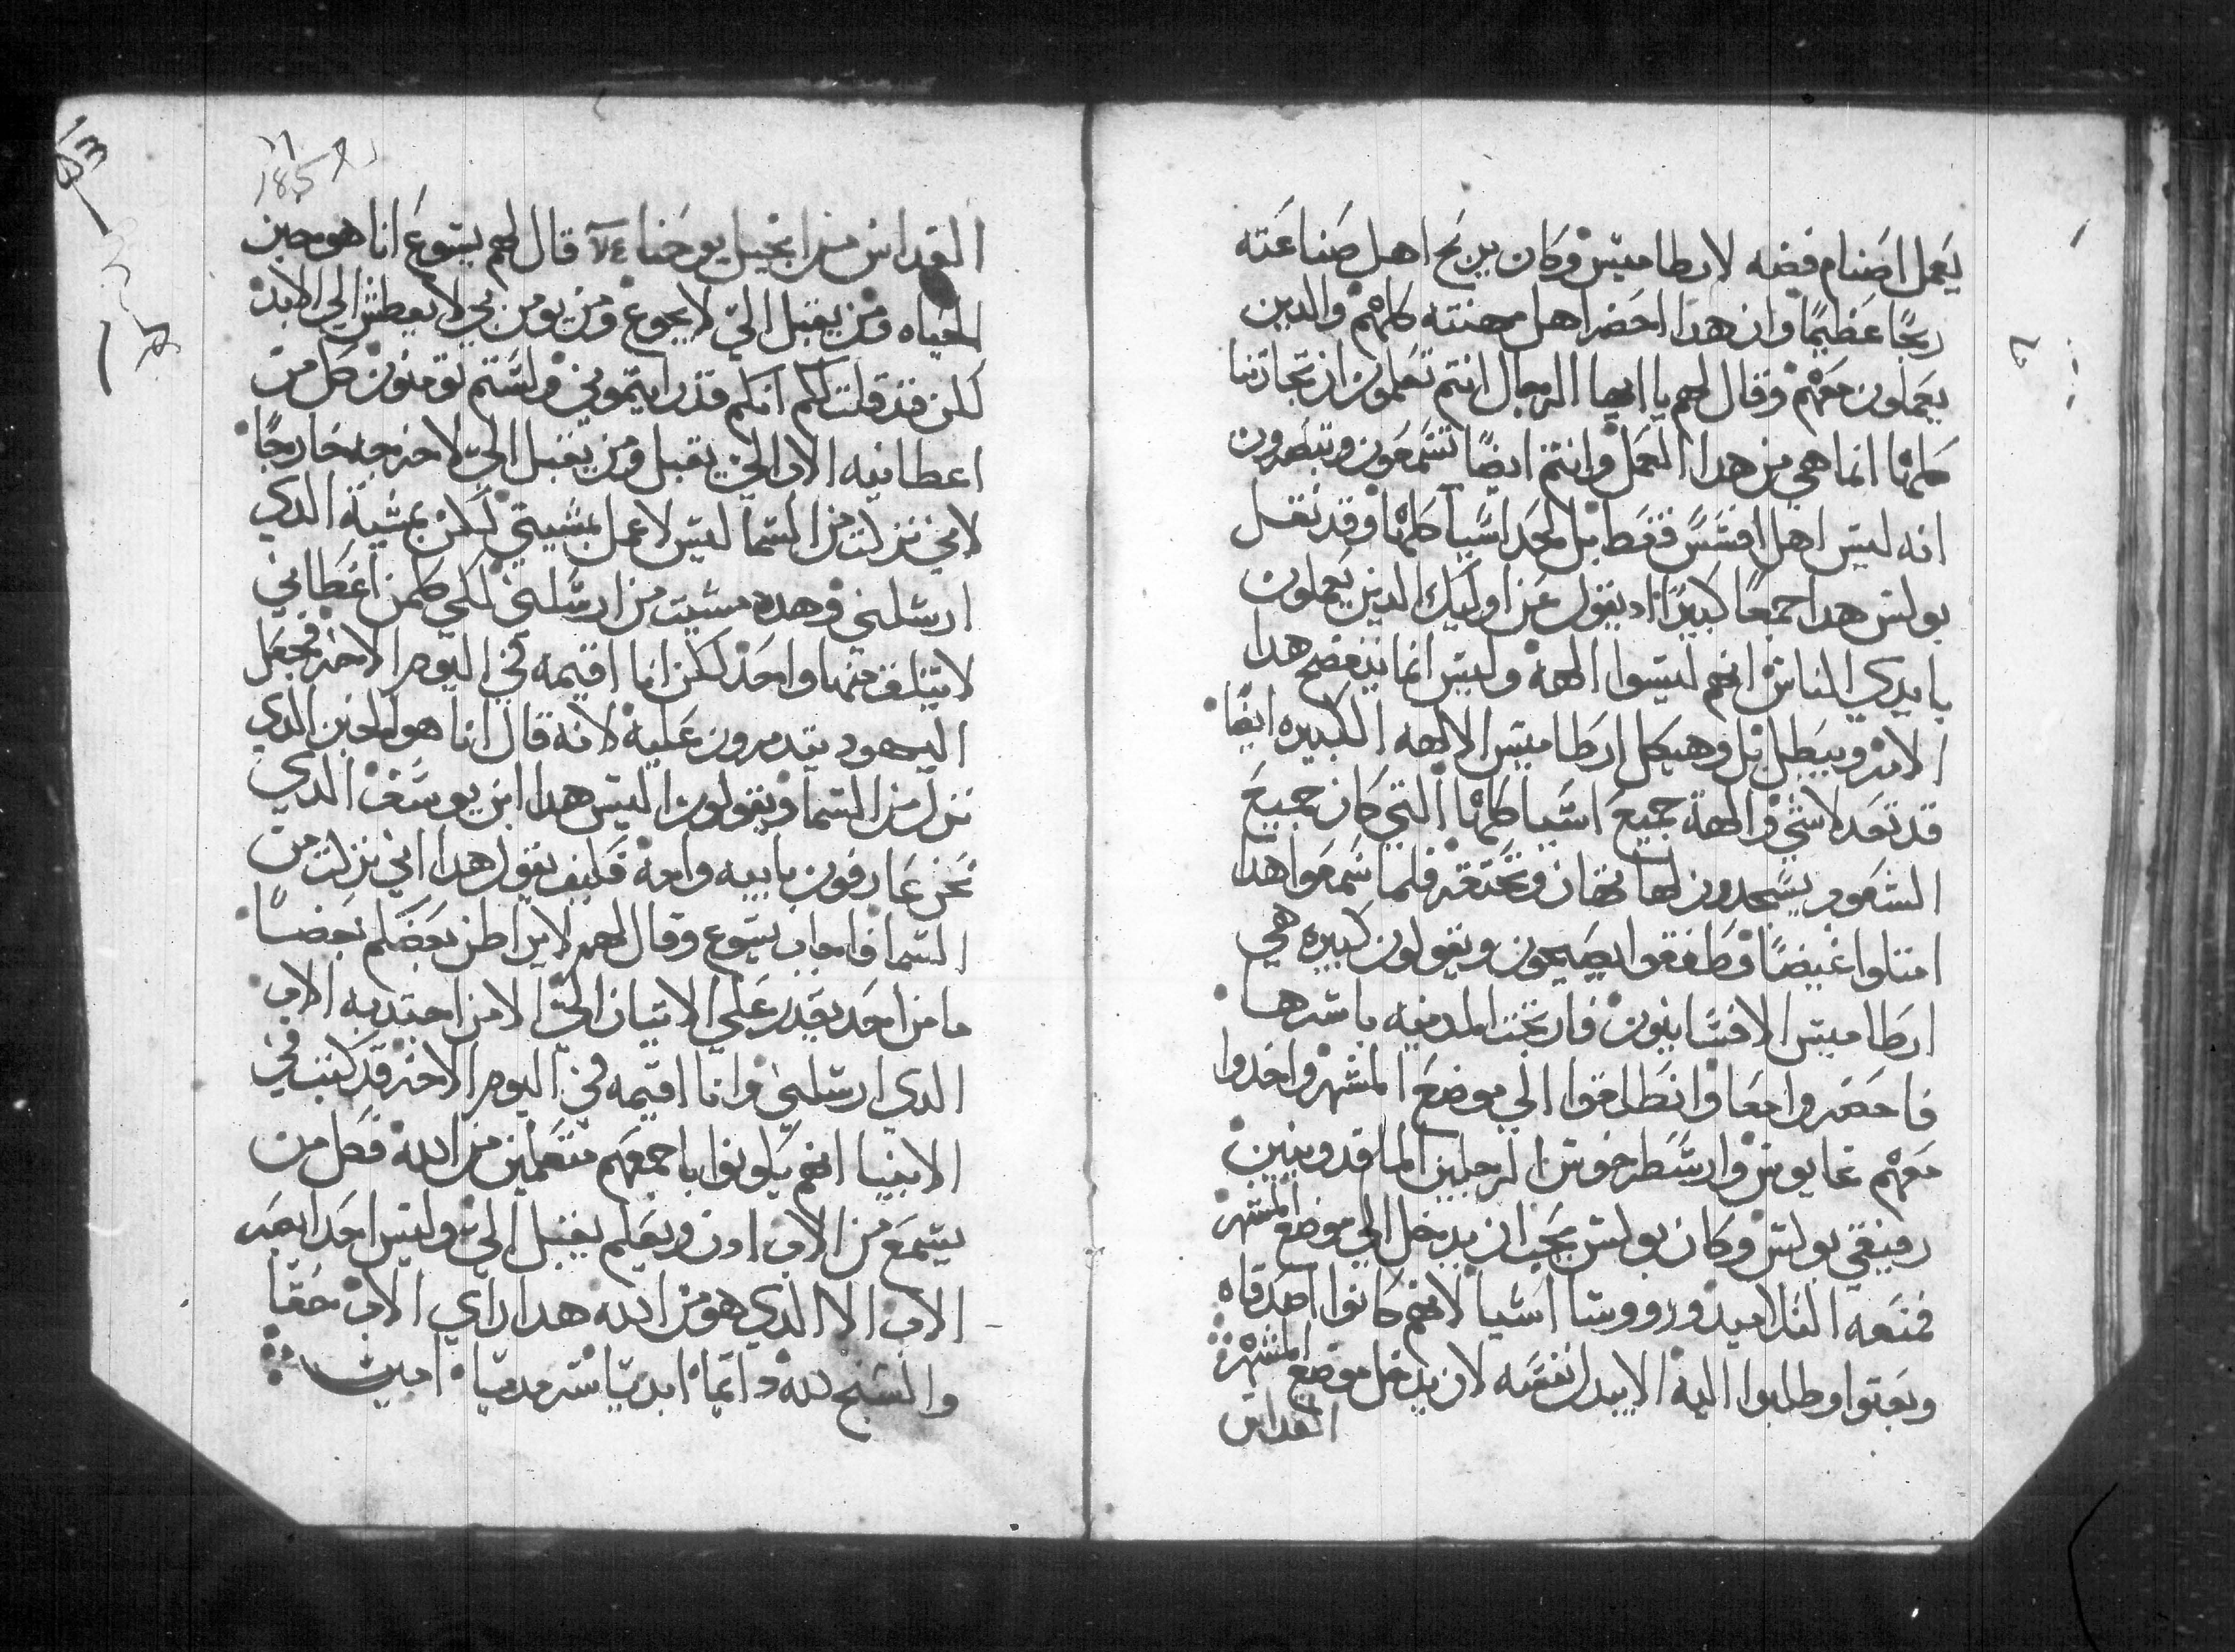 يَعمل اصَنام فضه لارطاميتس وكان يربَح اهل صَناعَته
ربحًا عَظيمًا وان هدا احَضر اهل مهنته كلهم والدين
يعَملون معَهم وقال لهم يا ايها الرجال انتم تعَلمون ان تجارتنا
كلها انما هي من هدا العَمل وانتم ايضًا تسَمعَون وتبصَرون
انه ليس اهل افسَسَ فقط بل لمحد اسَيا كلها وقد نقل
بولس هدا جمعًا كبيرًا اد يقول عَن اوليك الدين يَعملون
بايدي الناس انهم ليسوا الهة وليس انما يفتضح هدا
الامر ويبَطل بل وهيكل ارطاميتس الالهه الكبيره ايضًا
قد تعَد لا شي والهة جميع اسَيا كلها التي كان جميع
الشعَوب يسَجدون لها تهان وتحتقر فلما سَمعَوا هدا
امتلوا غيضًا وطفقوا يصَيحون ويقولون كبيره هي
ارطاميتس الافسَانيون فارتجت المدينه باسرها
فاحضَروا معَا وانطلقوا الي موضع المشهر واخدوا
معَهم غايوس وارسَطرخوس الرجلين الماقدونيين
رفيقي بولس وكان بولس يحَب ان يدخل الي موضع المشهر
فمنعَه التلاميد وروسا اسَيا لانهم كانوا اصَدقاه
وبعَتوا وطلبوا اليه الا يبدل نفسَه لان يدخل موضع المشهر
القداس
١٦
185
القداس من انجيل يوحَنا ٧٤ قال لهم يسَوعَ انا هو خبز
الحياه ومن يقبل الي لا يجوع ومن يومن بي لا يعطش الي الابد
لكن قد قلت لكم انكم قد رايتموني ولسَتم تومنون كل من
اعطانيه الاب الي يقبل ومن يقبل الي لا اخرجه خارجًا
لاني نزلت من السَما ليس لاعمل بمشيتي لكن بمشية الدي
ارسلني وهده مشيت من ارسَلني لكي كلمن اعَطاني
لا يتلف منها واحَد لكن انا اقيمه في اليوم الاخر فجعَل
اليهود يتدمرون عَليه لانه قال انا هو الخبز الدي
نزل من السَما ويقولون اليس هدا ابن يوسَف الدي
نحَن عَارفون بابيه وامه فكيف يقول هدا اني نزلت من
السَما فاجاب يسَوع وقال لهم لا يراطن بعَضكم بعَضًا
ما من احَد يقدر عَلي الاتيان الي الا من اجتدبه الاب
الدي ارسَلني وانا اقيمه في اليوم الاخر قد كتب في
الانبيا انهم يكونوا باجمعَهم متعَلمين من الله فكل من
يسَمَع من الاب ادن ويعَلم يقبل الي وليس احد ابصَر
الاب الا الدي هو من الله هدا راي الاب حَقا
والسَبح لله دايمًا ابديًا سرمديًا امين